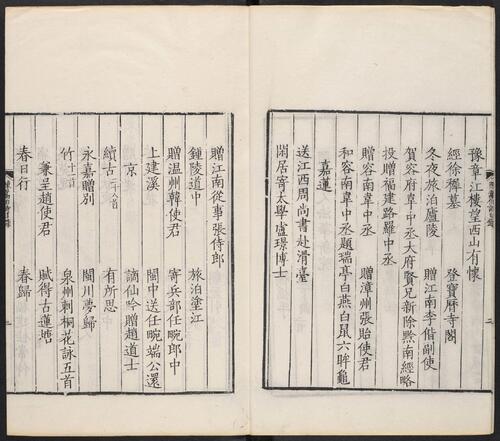 豫章江樓望西山有懷
經徐穉墓　登寶曆寺閣
冬夜旅泊廬陵　贈江南李偕副使
賀容府韋中丞大府賢兄新除黔南經略
投贈福建路羅中丞
贈容南韋中丞　贈漳州張貽使君
和容南韋中丞題瑞亭白燕白鼠六眸龜
嘉蓮
送江西周尚書赴滑臺
閑居寄太學盧璟博士
贈江南從事張侍郎
鍾陵道中　旅泊塗江
贈溫州韓使君　寄兵部任畹郎中
上建溪　閩中送任畹端公還
京　謫仙吟贈趙道士
續古二十九首　有所思
永嘉贈別　閩川夢歸
竹十一首　泉州刺桐花詠五首
兼呈趙使君　賦得古蓮塘
春日行　春歸